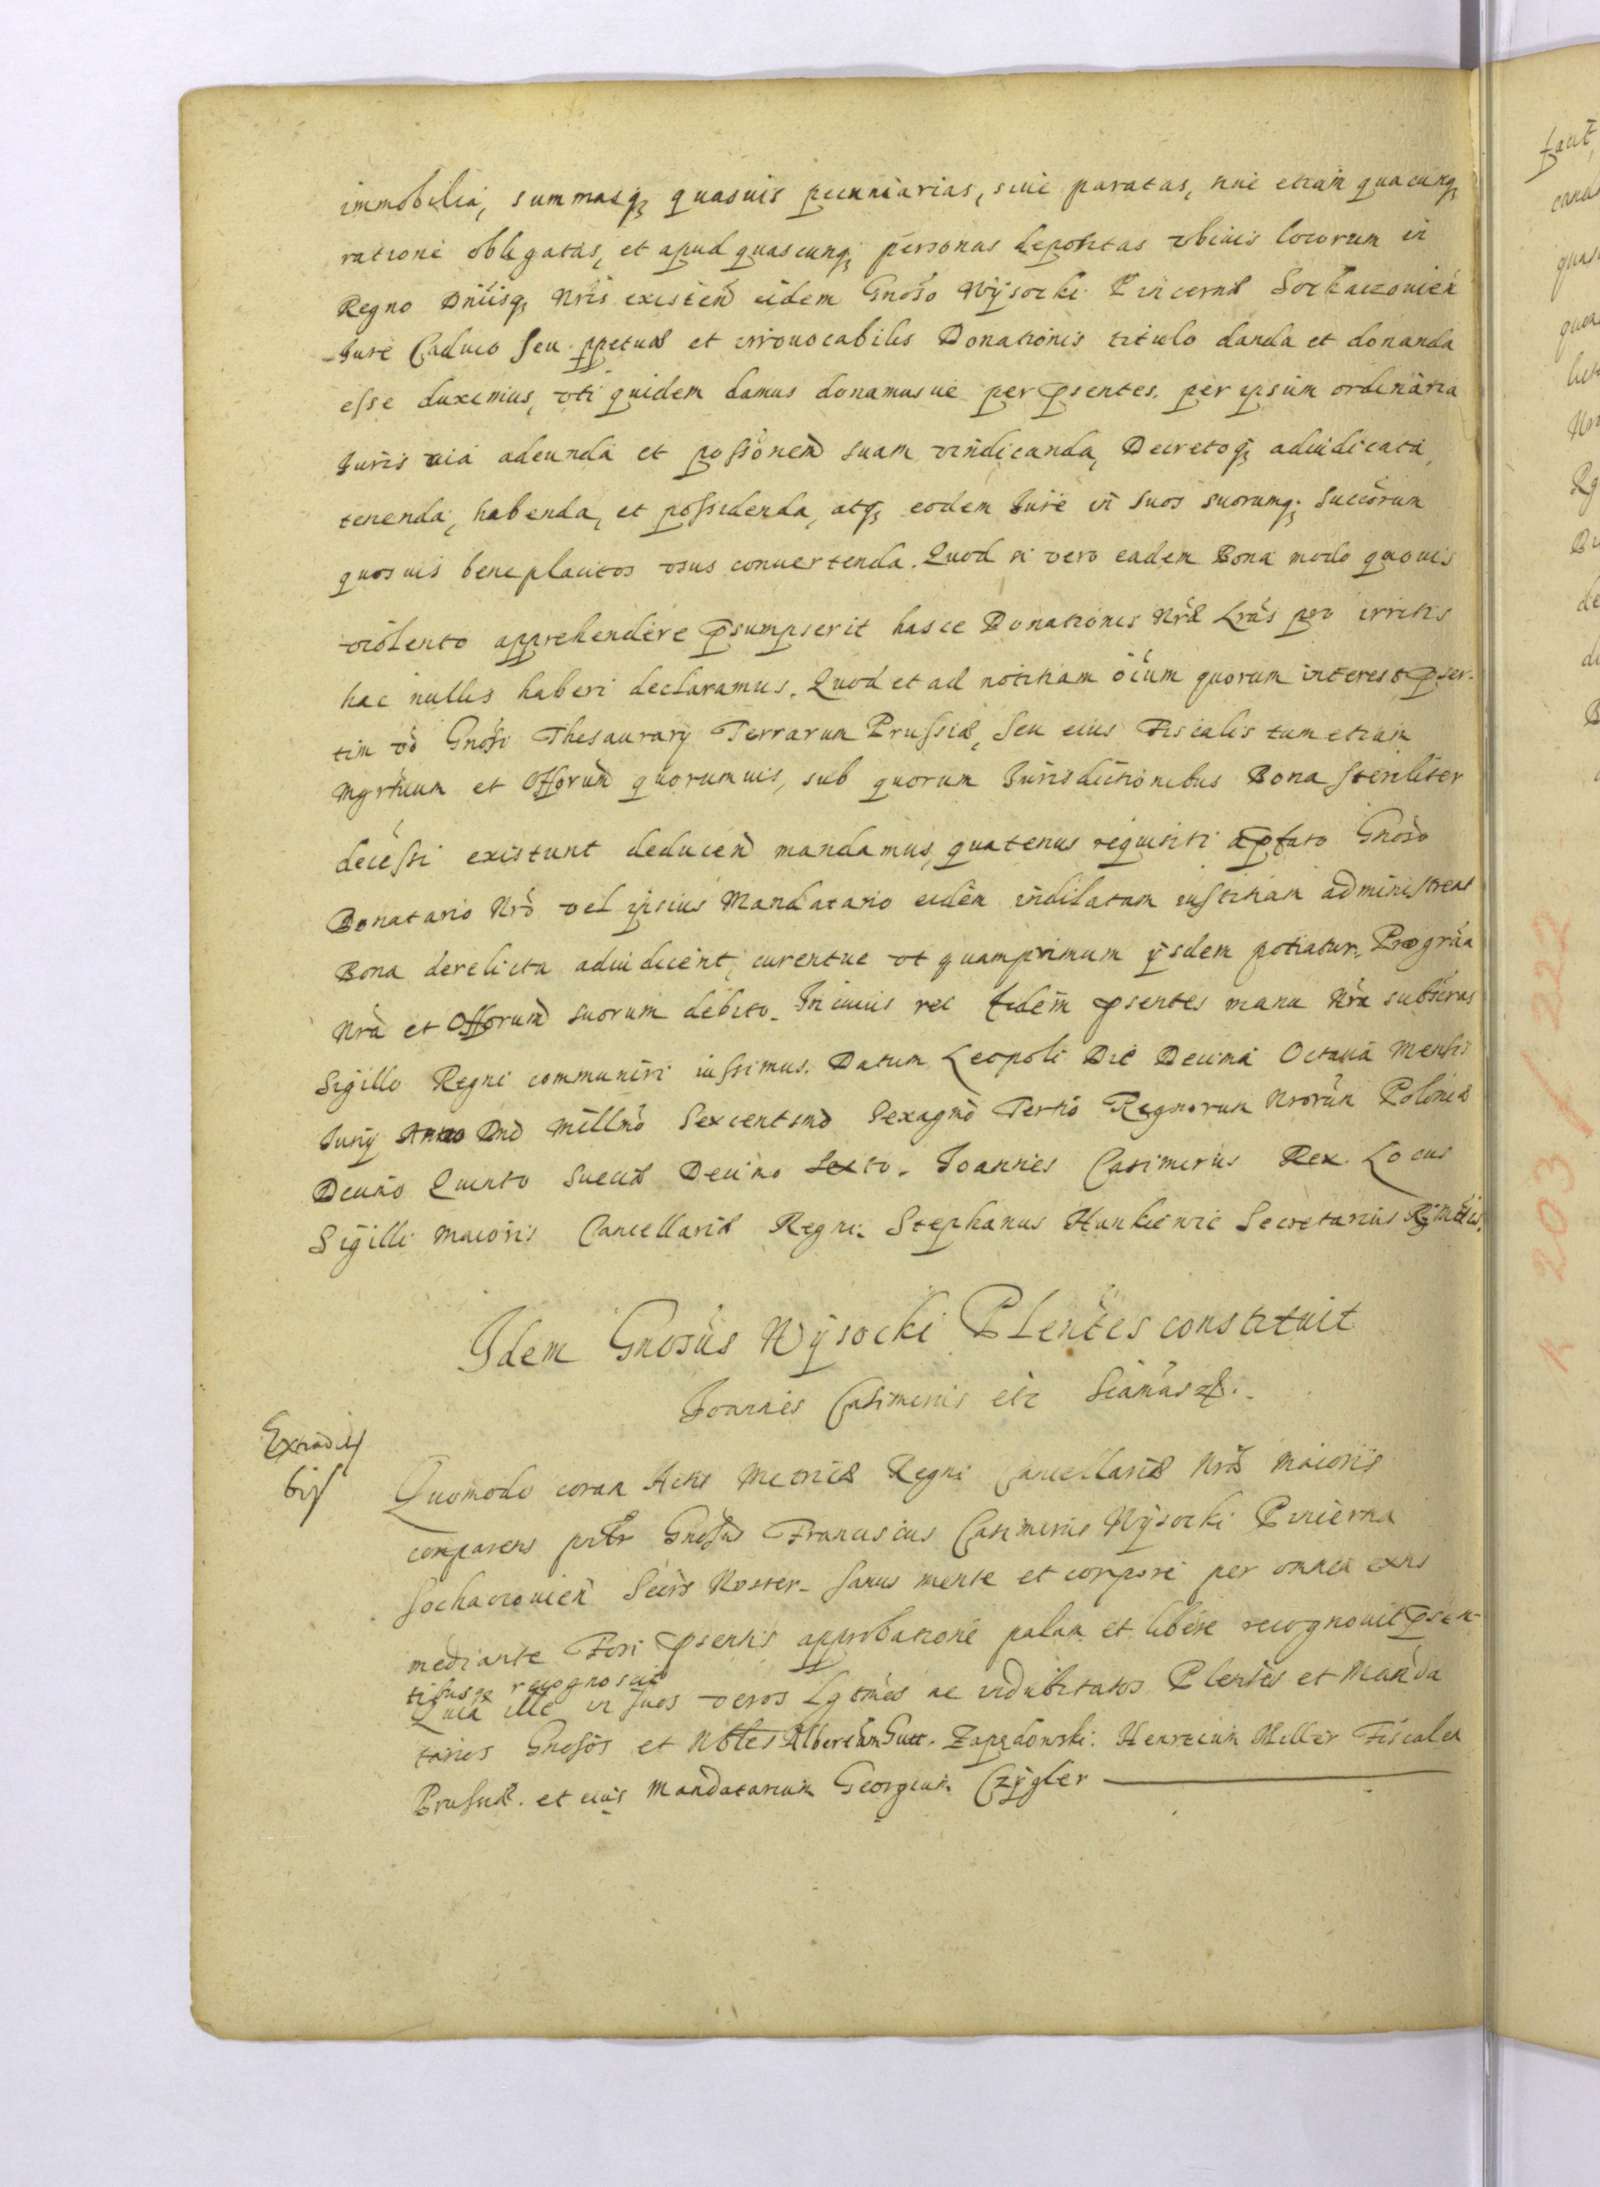 immobilia, summasq quasuis pecuniarias, siue paratas, siue etiam quacunq
ratione obligatas, et apud quascunq personas depositas vbiuis locorum in
Regno Dniisq Nris existen eidem Gnoso Wÿsocki Pincernæ Sochaczouien
Jure Caduco seu ppetuæ et irreuocabilis Donationis titulo danda et donanda
esse duximus, vti quidem damus donamusue per psentes. per ipsum ordinaria
Juris via adeunda et possionen suam vindicanda, Decretoq adiudicata,
tenenda, habenda, et possidenda, atq eodem Jure in suos suorumq Succorum
quosuis beneplacitos vsus conuertenda. Quod si vero eadem Bona modo quouis
violento apprehendere psumpserit hasce Donationis Nræ Lras pro irritis
hac nullis haberi declaramus. Quod et ad notitiam oium quorum interest pser-
tim vo Gnosi Thesaurarÿ Terrarum Prussiæ, seu eius Fiscalis tum etiam
Mgrtuum et Offorum quorumuis, sub quorum Jurisdictionibus Bona steriliter
decessi existunt deducen mandamus, quatenus requisiti apfato Gnoso
Donatario Nro vel ipsius Mandatario eidem indilatam iustitiam administrent
Bona derelicta adiudicent, curentue vt quamprimum ÿsdem potiatur. Pro gratia
Nra et Offorum suorum debito. In cuius rei fidem psentes manu Nra subscras
Sigillo Regni communiri iussimus. Datum Leopoli Die Decima Octaua Mensis
Junÿ Anno Dni Millmo Sexcentmo Sexagmo Tertio Regnorum Nrorum Poloniæ
Decimo Quinto Sueciæ Decimo Sexto. Joannes Casimirus Rex. Locus
Sigilli Maioris Cancellariæ Regni. Stephanus Hankiewic Secretarius R Mtis.
Idem Gnosus Wÿsocki Plentes constituit
Joannes Casimirus etc
Extradit
bis
Quomodo coram Actis Metricæ Regni Cancellariæ Nræ Maioris
comparens psltr Gnosus Franciscus Casimirus Wÿsocki Pincerna
Sochaczouien Secrs Noster. sanus mente et corpore per omnia exns
mediante Fori psentis approbatione palam et libere recognouit psen-
tibusq recognoscit
Quia ille in suos veros Lgtmos ac indubitatos Plentes et Manda
tarios Gnosos et Nbles Albertum Zapędowski. Henricum Miller Fiscalem
Prussiæ. et eius Mandatarium Georgium Czÿgler